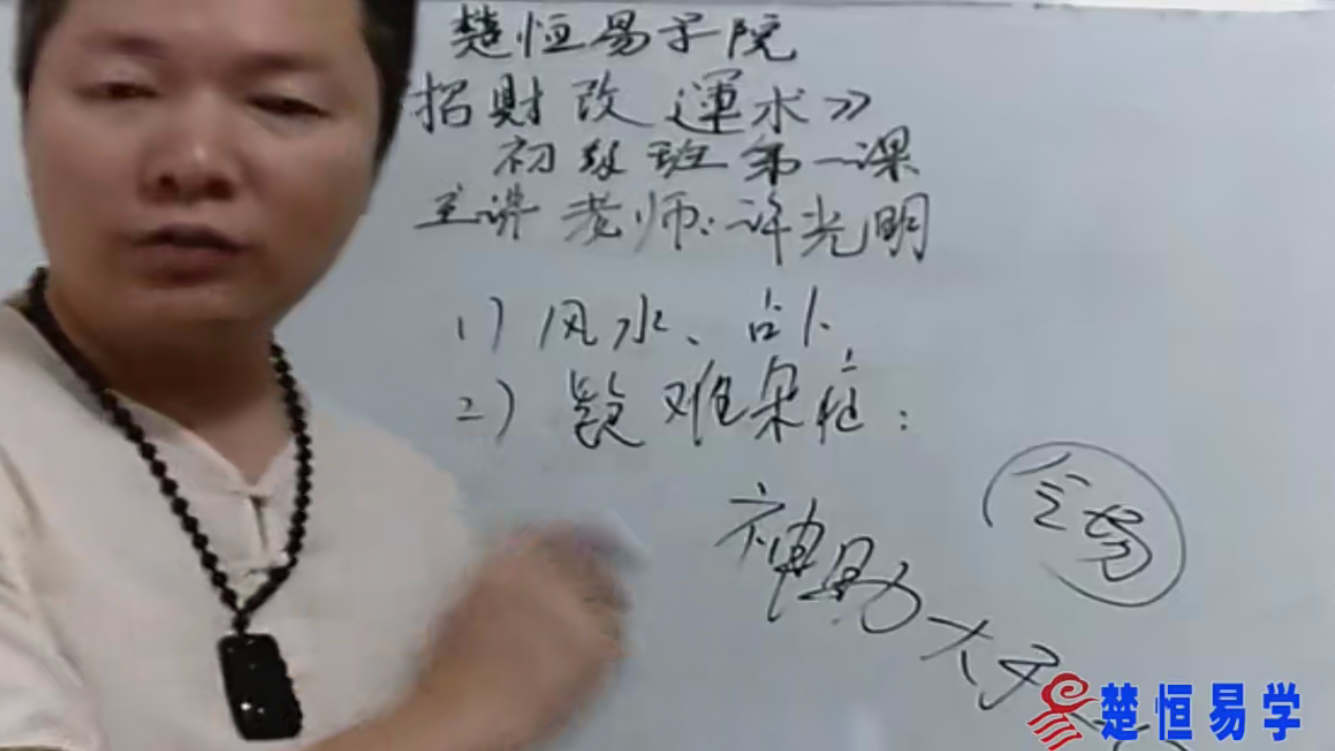 楚恒易学院
招财改運术》
初级班第一课
主讲老师:许光明
1)风水、占卜
2)疑难杂症:
气场
神助大于
楚恒易学